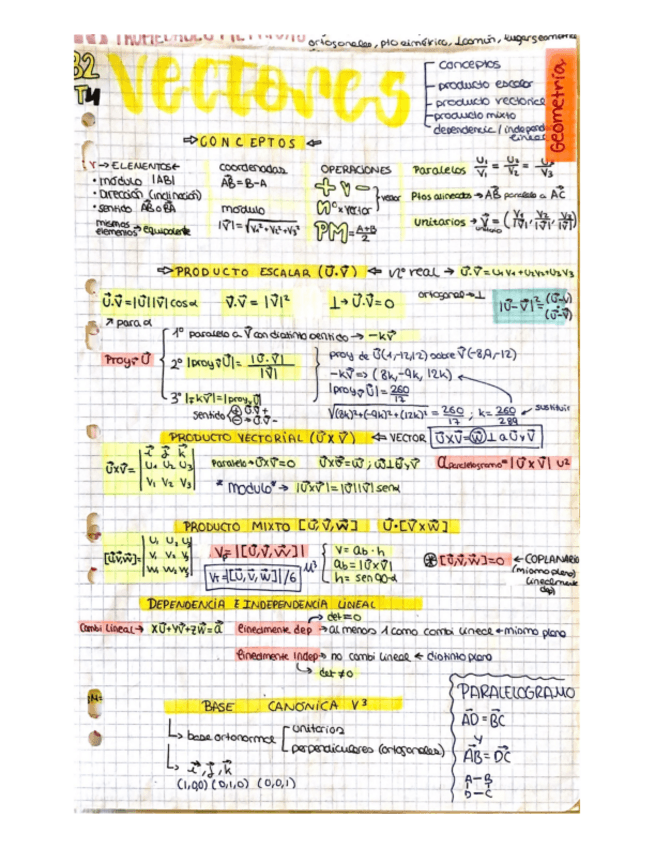 ortogonales, pto simétrico, 1 común, lugar geometri
B2
T4
VECTORES
conceptos
producto escalar
producto vectorial
producto mixto
dependencia / independ lineal
Geometría
⇒CONCEPTOS⇐
→ELEMENTOS←
• módulo |AB|
• Dirección (inclinación)
• sentido AB o BA
mismos elementos→equipolente
coordenadas
AB=B-A
modulo
|V|=√V₁²+V₂²+V₃²
OPERACIONES
+ y - } vector
Nº x vector
PM=A+B/2
Paralelos U₁/V₁ = U₂/V₂ = U₃/V₃
Ptos alineados→AB paralelo a AC
unitarios→V unitario=(V₁/|V|, V₂/|V|, V₃/|V|)
⇒PRODUCTO ESCALAR (U·V)⇐ nº real → U·V=U₁V₁+U₂V₂+U₃V₃
U·V=|U||V|cosα V·V=|V|² ⊥→U·V=0 ortogonal→⊥ |U-V|²=(U-V)(U-V)
↗ para α
Proy V U
1º paralelo a V con distinto sentido → -kV
2º |proy V U|=|U·V|/|V|
3º |-kV|=|proy V U|
sentido ⊕ U·V +
⊖→U·V -
proy de U(1,-12,12) sobre V(-8,9,-12)
-kV=>(8k,-9k,12k)
|proy V U|=260/17
√(8k)²+(-9k)²+(12k)²=260/17; k=260/289 sustituir
PRODUCTO VECTORIAL (UxV) ⇐VECTOR UxV=W⊥a U y V
UxV= | i j k
U₁ U₂ U₃
V₁ V₂ V₃ |
Paralelo→UxV=0 UxV=W; W⊥U y V Aparalelogramo=|UxV| u²
* Modulo* → |UxV|=|U||V|senα
PRODUCTO MIXTO [U,V,W] U·[VxW]
[U,V,W]= | U₁ U₂ U₃
V₁ V₂ V₃
W₁ W₂ W₃ |
Vp=|[U,V,W]|
VT=|[U,V,W]|/6
u³
V=ab·h
ab=|UxV|
h=sen90-α
⊛[U,V,W]=0 ←COPLANARIO
(mismo plano)
(linealmente dep)
DEPENDENCIA E INDEPENDENCIA LINEAL
det=0
Combi lineal→ xU+yV+zW=a linealmente dep→al menos 1 como combi lineal←mismo plano
linealmente indep→no combi lineal←distinto plano
det≠0
PM=
BASE CANÓNICA V³
base ortonormal
unitarios
perpendiculares (ortogonales)
i, j, k
(1,0,0) (0,1,0) (0,0,1)
PARALELOGRAMO
AD=BC
y
AB=DC
A-B
D-C